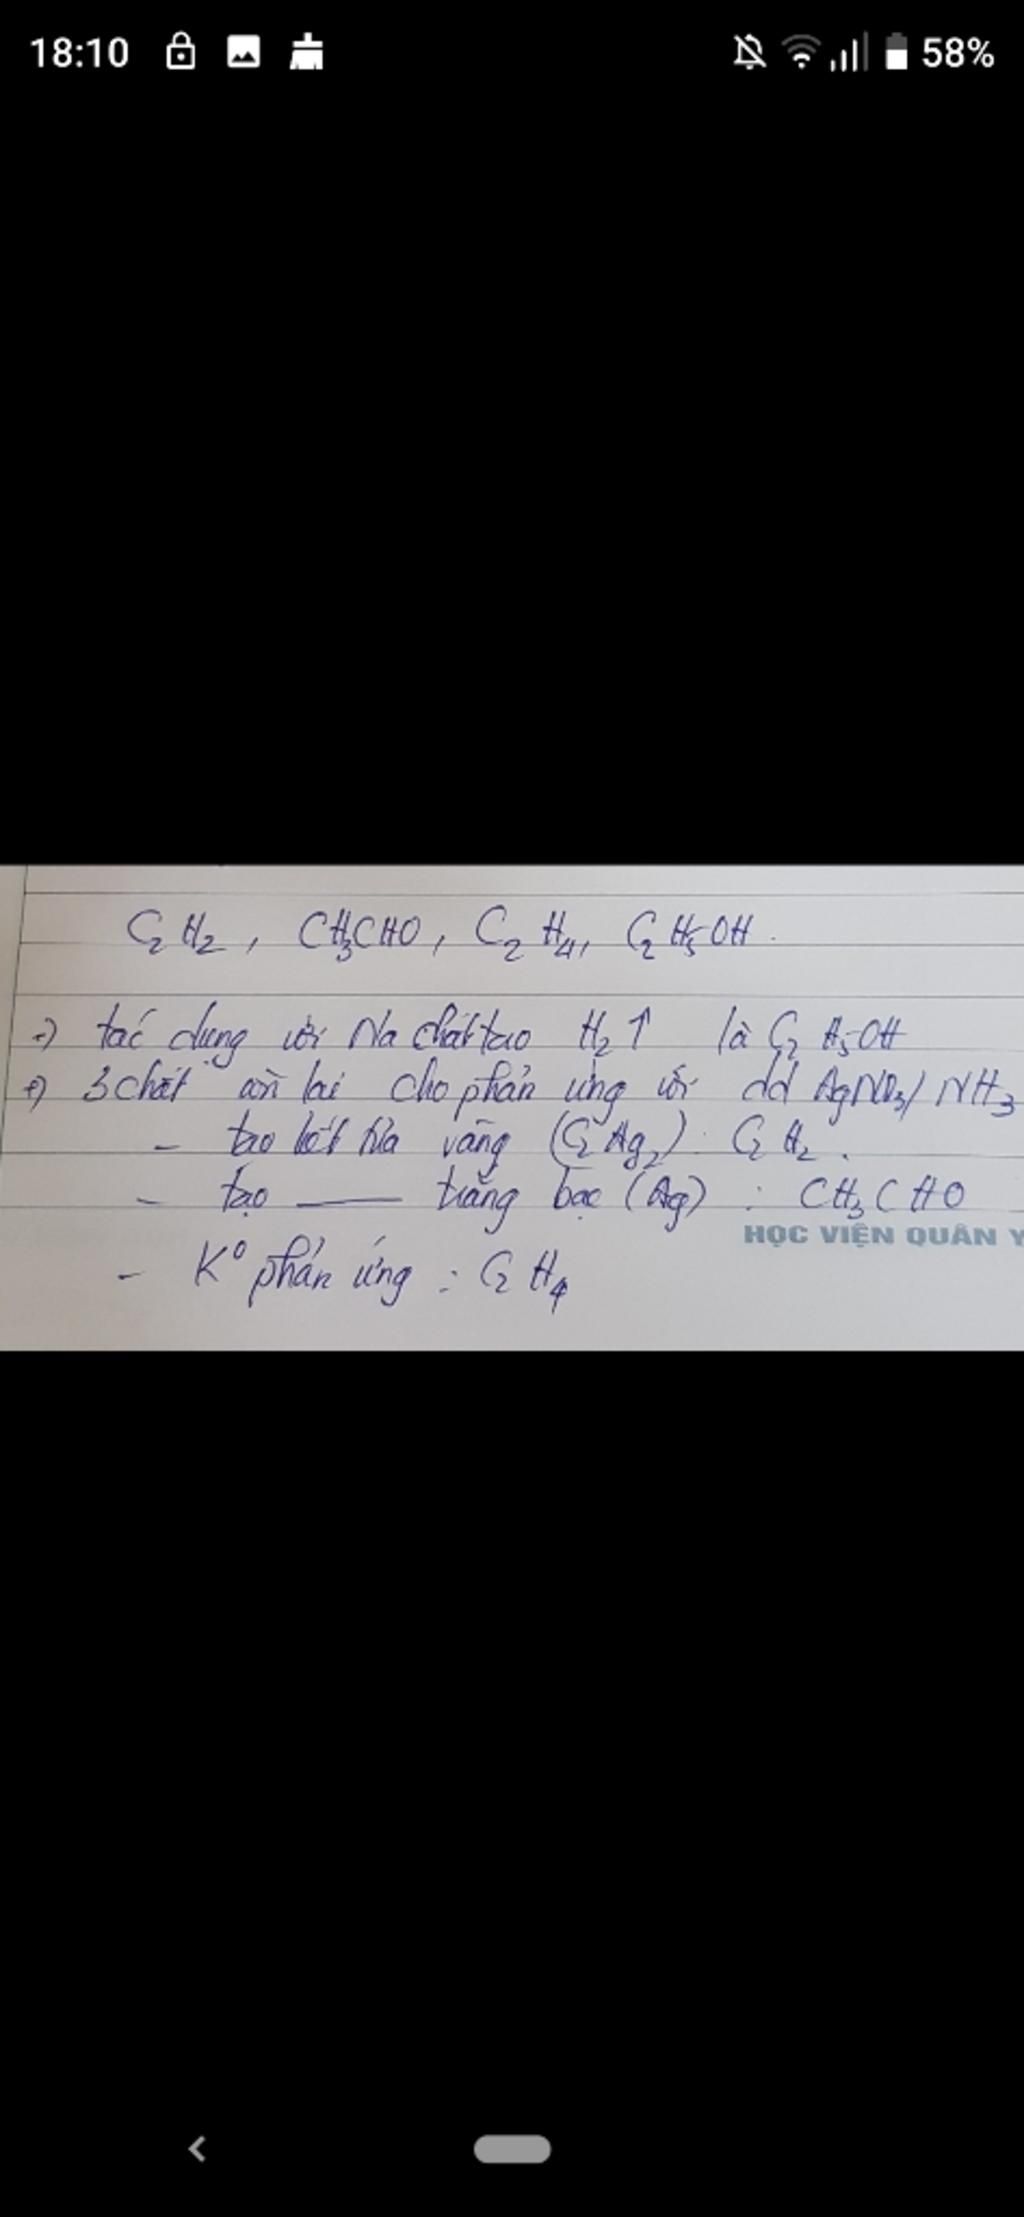 18:10 58%
C2H2, CH3CHO, C2H4, C2H5OH.
+) tác dụng với Na chất tạo H2↑ là C2H5OH
+) 3 chất còn lại cho phản ứng với dd AgNO3/NH3
- tạo kết tủa vàng (C2Ag2): C2H2.
- tạo —— trắng bạc (Ag): CH3CHO
HỌC VIỆN QUÂN Y
- K° phản ứng: C2H4